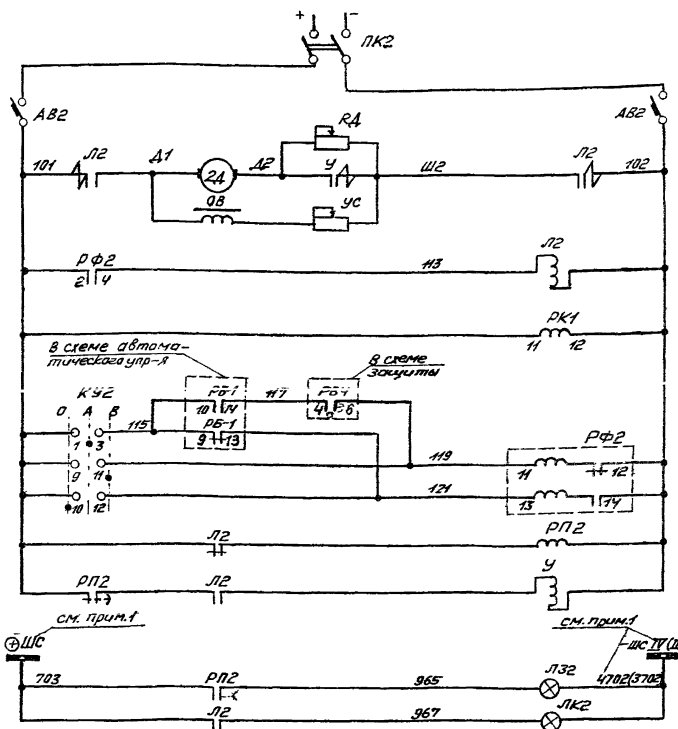 + −
ПК2
АВ2 АВ2
RД
101 Л2 Д1 2Д Д2 У Ш2 Л2 102
ОВ УС
РФ2 113 Л2
2 4
РК1
11 12
В схеме автома-
тического упр-я
В схеме
защиты
КУ2
О А В
РБ-1 117
10 14 4 6
115 РБ-1
9 13
1 3
РФ2
9 11 119 11 12
10 12 121 13 14
Л2 РП2
РП2 Л2 У
см. прим.1 см. прим.1
+ШС −ШС IV(II
703 РП2 965 ЛЗ2 4702(3702)
Л2 967 ЛК2